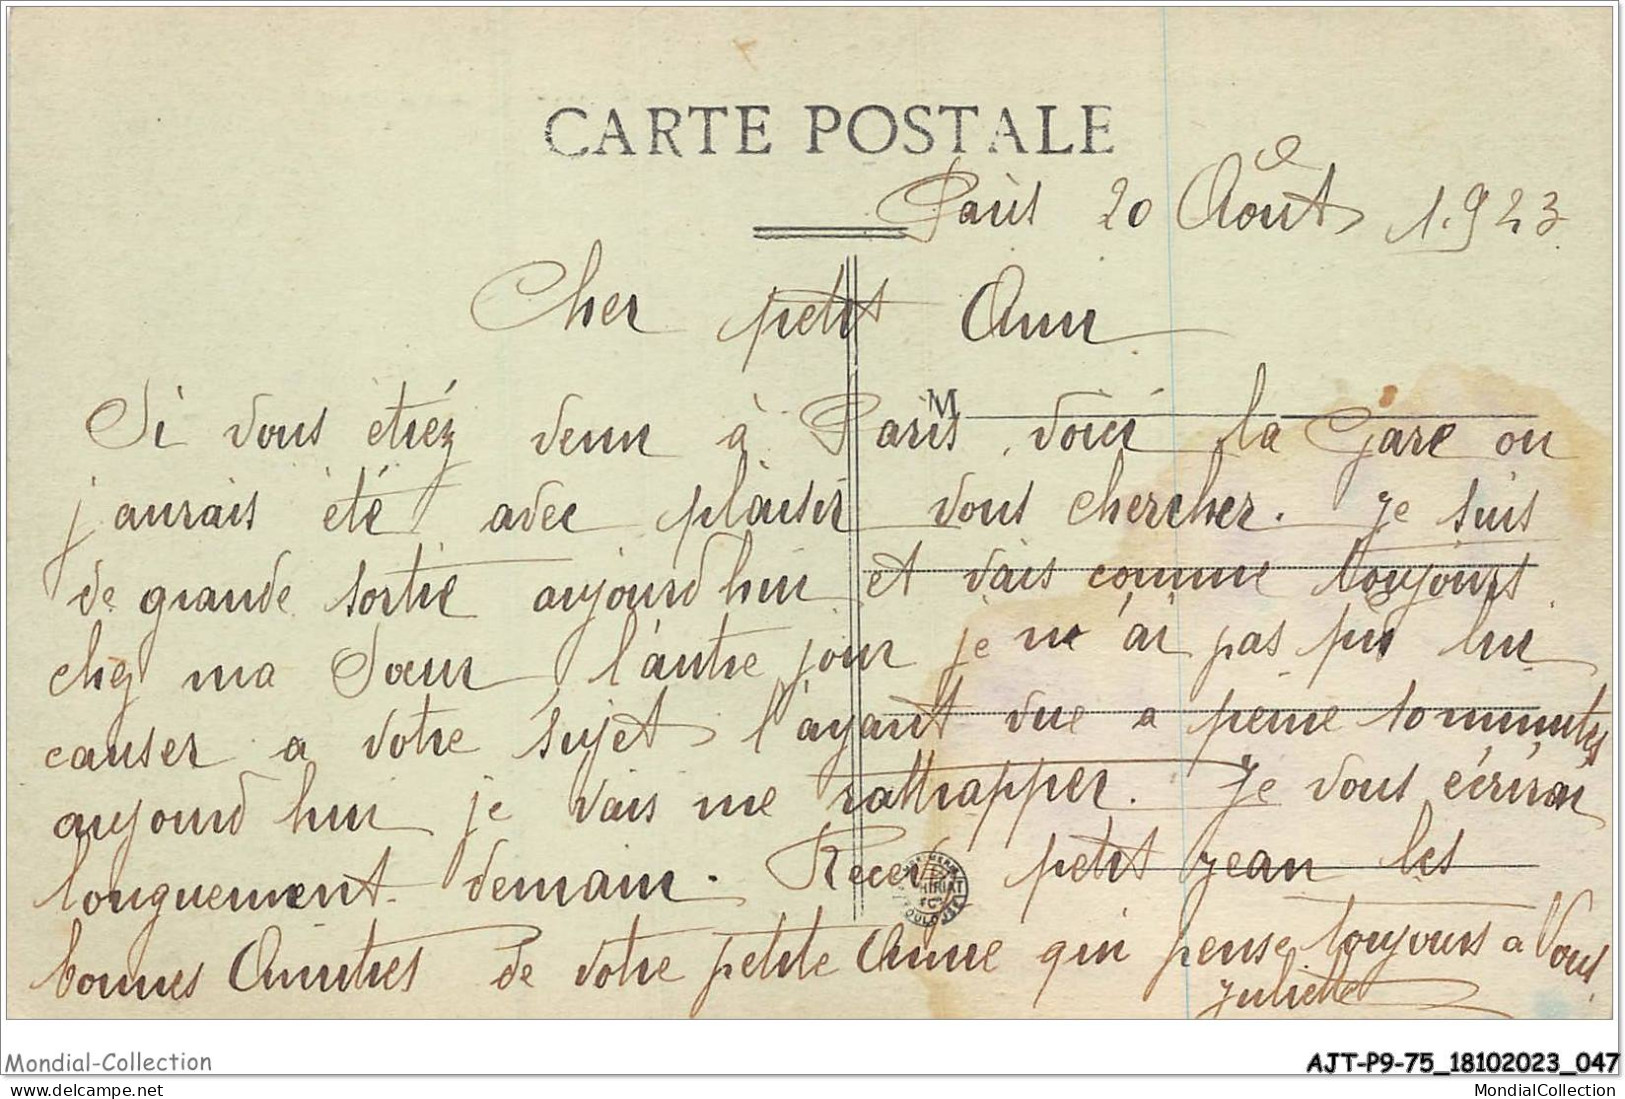 CARTE POSTALE
Paris 20 Août 1.923
Cher petit Ami
M
Si vous étiez venu à Paris, voici la Gare ou
j'aurais été avec plaisir vous chercher. Je suis
de grande sortie aujourd'hui et vais comme toujours
chez ma Soeur l'autre jour je ne n'ai pas pu lui
causer a votre sujet l'ayant vue a peine 10 minutes
aujourd'hui je vais me rattrapper. Je vous écrirai
longuement demain. Recevez petit Jean les
bonnes Amitiés de votre petite Amie qui pense toujours a Vous
Juliette
Mondial-Collection
AJT-P9-75_18102023_047
www.delcampe.net
MondialCollection